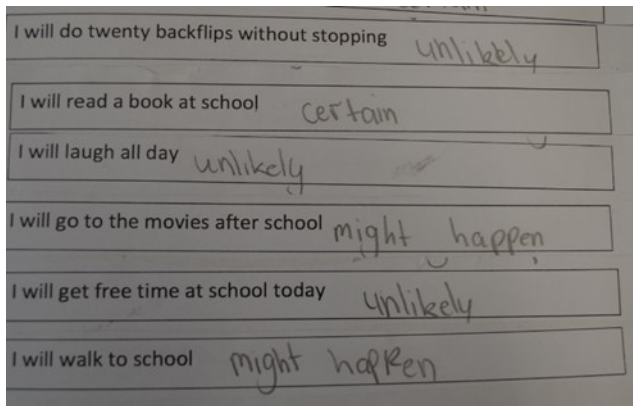 I will do twenty backflips without stopping unlikely
I will read a book at school certain
I will laugh all day unlikely
I will go to the movies after school might happen
I will get free time at school today unlikely
I will walk to school might happen